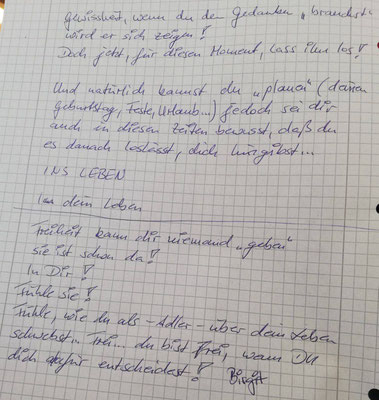 Gewissheit, wenn du den Gedanken „brauchst“
wird er sich zeigen!
Doch jetzt, für diesen Moment, lass ihn los!
Und natürlich kannst du „planen“ (deinen
Geburtstag, Feste, Urlaub...) jedoch sei dir
auch in diesen Zeiten bewusst, daß du
es danach loslässt, dich hingibst...
INS LEBEN
dem Leben
Freiheit kann dir niemand „geben“
sie ist schon da!
In Dir!
Fühle sie!
Fühle, wie du als - Adler - über dem Leben
schwebst... Frei... du bist frei, wenn DU
dich dafür entscheidest! Birgit